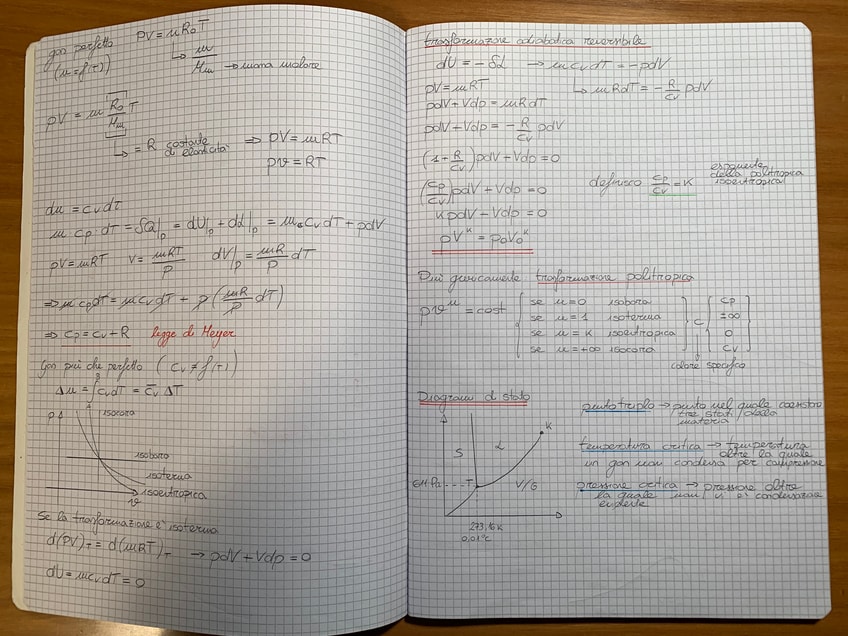 gas perfetto pV = nR₀T
(u = f(T)) ↳ m/Mm → massa molare
pV = m R₀/Mm T
↳ = R costante di elasticità ⇒ pV = mRT
pv = RT
du = cvdT
m cp dT = δQ|p = dU|p + dL|p = m cvdT + pdV
pV = mRT V = mRT/p dV|p = mR/p dT
⇒ m cpdT = mcvdT + p(mR/p dT)
⇒ cp = cv + R legge di Meyer
Gas più che perfetto (cv ≠ f(T))
Δu = ∫cvdT = c̄v ΔT
p
isocora
isobara
isoterma
isoentropica
v
Se la trasformazione è isoterma
d(PV)T = d(mRT)T → pdV + Vdp = 0
dU = mcvdT = 0
trasformazione adiabatica reversibile
dU = -δL → mcvdT = -pdV
pV = mRT ↳ mRdT = -R/cv pdV
pdV + Vdp = mRdT
pdV + Vdp = -R/cv pdV
(1 + R/cv)pdV + Vdp = 0
(cp/cv)pdV + Vdp = 0 definisco cp/cv = K esponente della politropica isoentropica
KpdV - Vdp = 0
pV^K = p₀V₀^K
Più genericamente trasformazione politropica
pv^n = cost
se n = 0 isobara cp
se n = 1 isoterma ±∞
se n = K isoentropica 0
se n = +∞ isocora cv
C
calore specifico
Diagrammi di stato
punto triplo → punto nel quale coesistono tre stati della materia
temperatura critica → temperatura oltre la quale
un gas non condensa per compressione
pressione critica → pressione oltre
la quale non vi è condensazione
S
L
K
T
V/G
273,16 K
0,01°C